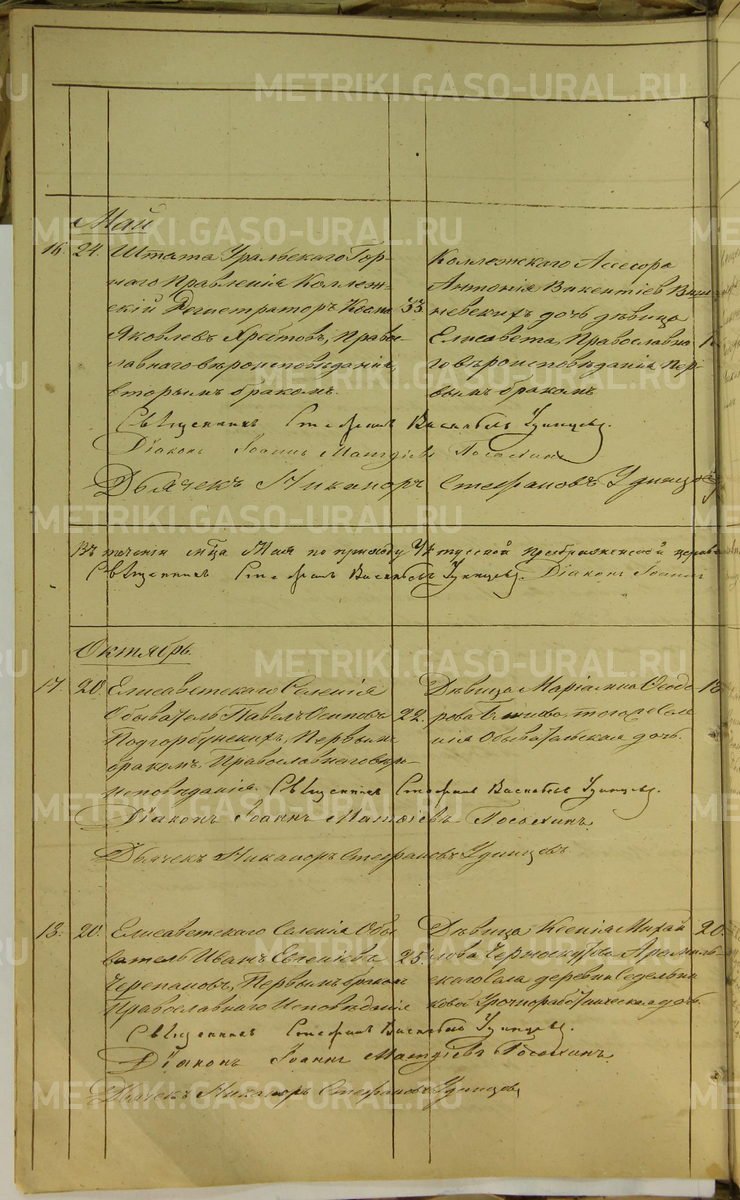 Май
16. 24. Штата Уральскаго Гор-
наго Правленія Коллеж-
скій Регистраторъ
Яковлевъ Хребтовъ, Право-
славнаго вѣроисповѣданія,
вторымъ бракомъ.
33.
Коллежскаго Ассесора
Антонія Викентіева
невскихъ дочь дѣвица
Елисавета, Православна
го вѣроисповѣданія пер-
вымъ бракомъ
Священникъ Стефанъ Удинцевъ.
Діаконъ Іоаннъ Матѳіевъ Посохинъ
Дьячекъ Никаноръ Стефановъ Удинцевъ
Въ теченіи мѣсяца Мая по приходу Уктусской Преображенской церкви
Священникъ Стефанъ Удинцевъ. Діаконъ Іоаннъ
Октябрь.
17. 20. Елисаветскаго Селенія
Обыватель Павелъ Осиповъ
Подгорбунскихъ, Первымъ
бракомъ Православнаго вѣро-
исповѣданія.
22.
Дѣвица Маріамна Ѳеодо
рова тогоже Селе
нія Обывательская дочь.
Священникъ Стефанъ Удинцевъ.
Діаконъ Іоаннъ Матѳіевъ Посохинъ.
Дьячекъ Никаноръ Стефановъ Удинцевъ
18. 20. Елисаветскаго Селенія Обы
ватель Иванъ Евгеніевъ
Черепановъ, Первымъ бракомъ
Православнаго Исповѣданія
25.
Дѣвица Ксенія Михай
лова Черноскутова Арамиль-
скаго Села деревни Седельни
ковой Урочноработническая дочь.
20.
Священникъ Стефанъ Удинцевъ.
Діаконъ Іоаннъ Матѳіевъ Посохинъ.
Дьячекъ Никаноръ Стефановъ Удинцевъ
METRIKI.GASO-URAL.RU